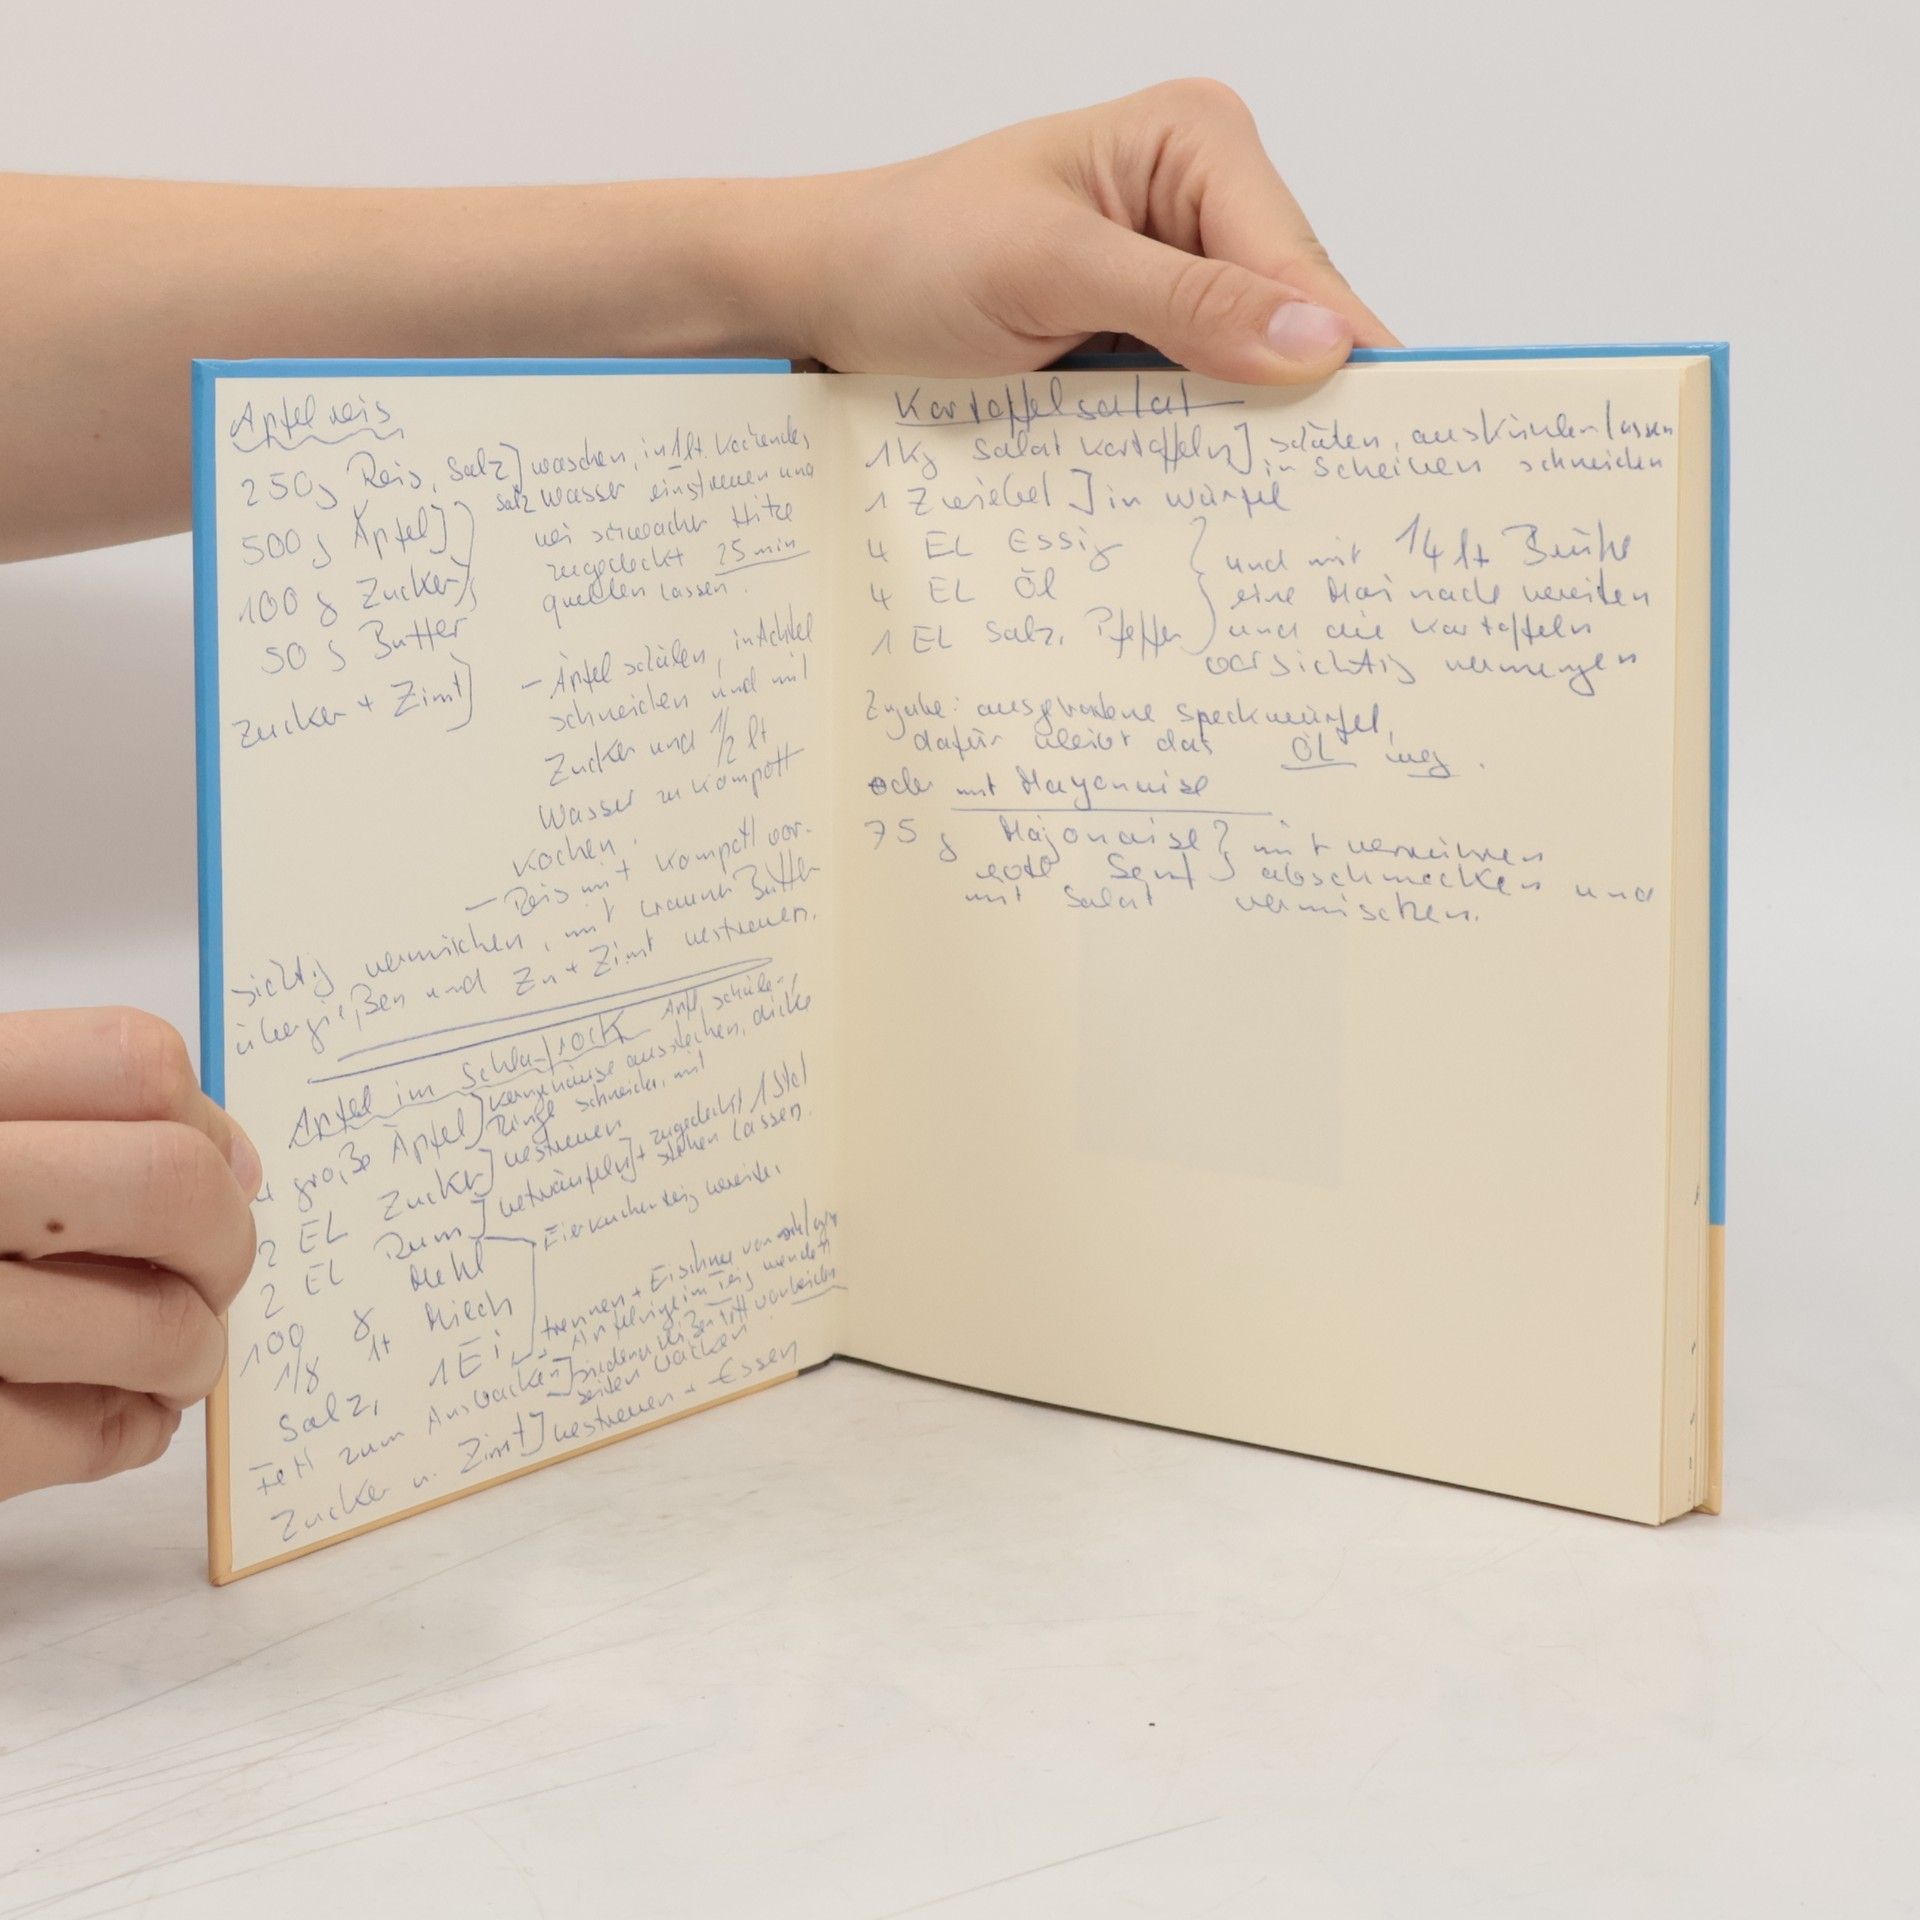 Apfelreis
250g Reis, Salz] waschen, in 1 lt. kochendes
Salzwasser einstreuen und
500 g Äpfel] bei schwacher Hitze
zugedeckt 25 min
100 g Zucker quellen lassen.
50 g Butter
Zucker + Zimt] – Äpfel schälen, in Achtel
schneiden und mit
Zucker und 1/2 lt
Wasser zu Kompott
kochen.
– Reis mit Kompott vor-
sichtig vermischen, mit brauner Butter
übergießen und Zu + Zimt bestreuen.
Äpfel im Schlafrock
Äpfel schälen,
4 große Äpfel] Kerngehäuse ausstechen, dicke
Ringe schneiden, mit
2 EL Zucker] bestreuen
2 EL Rum] beträufeln] + zugedeckt 1 Std
stehen lassen.
100 g Mehl Eierkuchenteig bereiten
1/8 lt Milch
Salz, 1 Ei, trennen + Eischnee
Apfelringe im Teig wenden
Fett zum Ausbacken] in heißem Fett von beiden
Seiten backen
Zucker u. Zimt] bestreuen + Essen
Kartoffelsalat
1 Kg Salatkartoffeln] schälen, auskühlen lassen
in Scheiben schneiden
1 Zwiebel] in Würfel
4 EL Essig } und mit 1/4 lt Brühe
4 EL Öl eine Marinade bereiten
1 EL Salz, Pfeffer und die Kartoffeln
vorsichtig vermengen
Zugabe: ausgebratene Speckwürfel,
dafür bleibt das ÖL weg.
oder mit Mayonnise
75 g Majonaise } mit verrühren
evtl Senf abschmecken und
mit Salat vermischen.